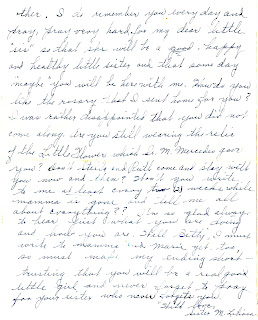 other. I do remember you every day and
pray, pray very hard for my dear little
"sis" so that she will be a good - happy
and healthy little sister and that some day
"maybe" you will be here with me. How do you
like the rosary - that I sent home for you?
I was rather disappointed that you did not
come along. Are you still wearing the relic
of the Little Flower which Sr. M. Mercedes gave
you? Don't Steve and Carl come and stay with
you now and then? Don't you write
to me at least every two (2) weeks while
mamma is gone and tell me all
about everything?? I'm so glad always
to hear just what you are doing
and how you are. Well Betty, I must
write to mamma and Marie yet, too,
so must make my ending short -
trusting that you will be a real good
little girl and never forget to pray
for your sister who never forgets you.
With love,
Sister M.